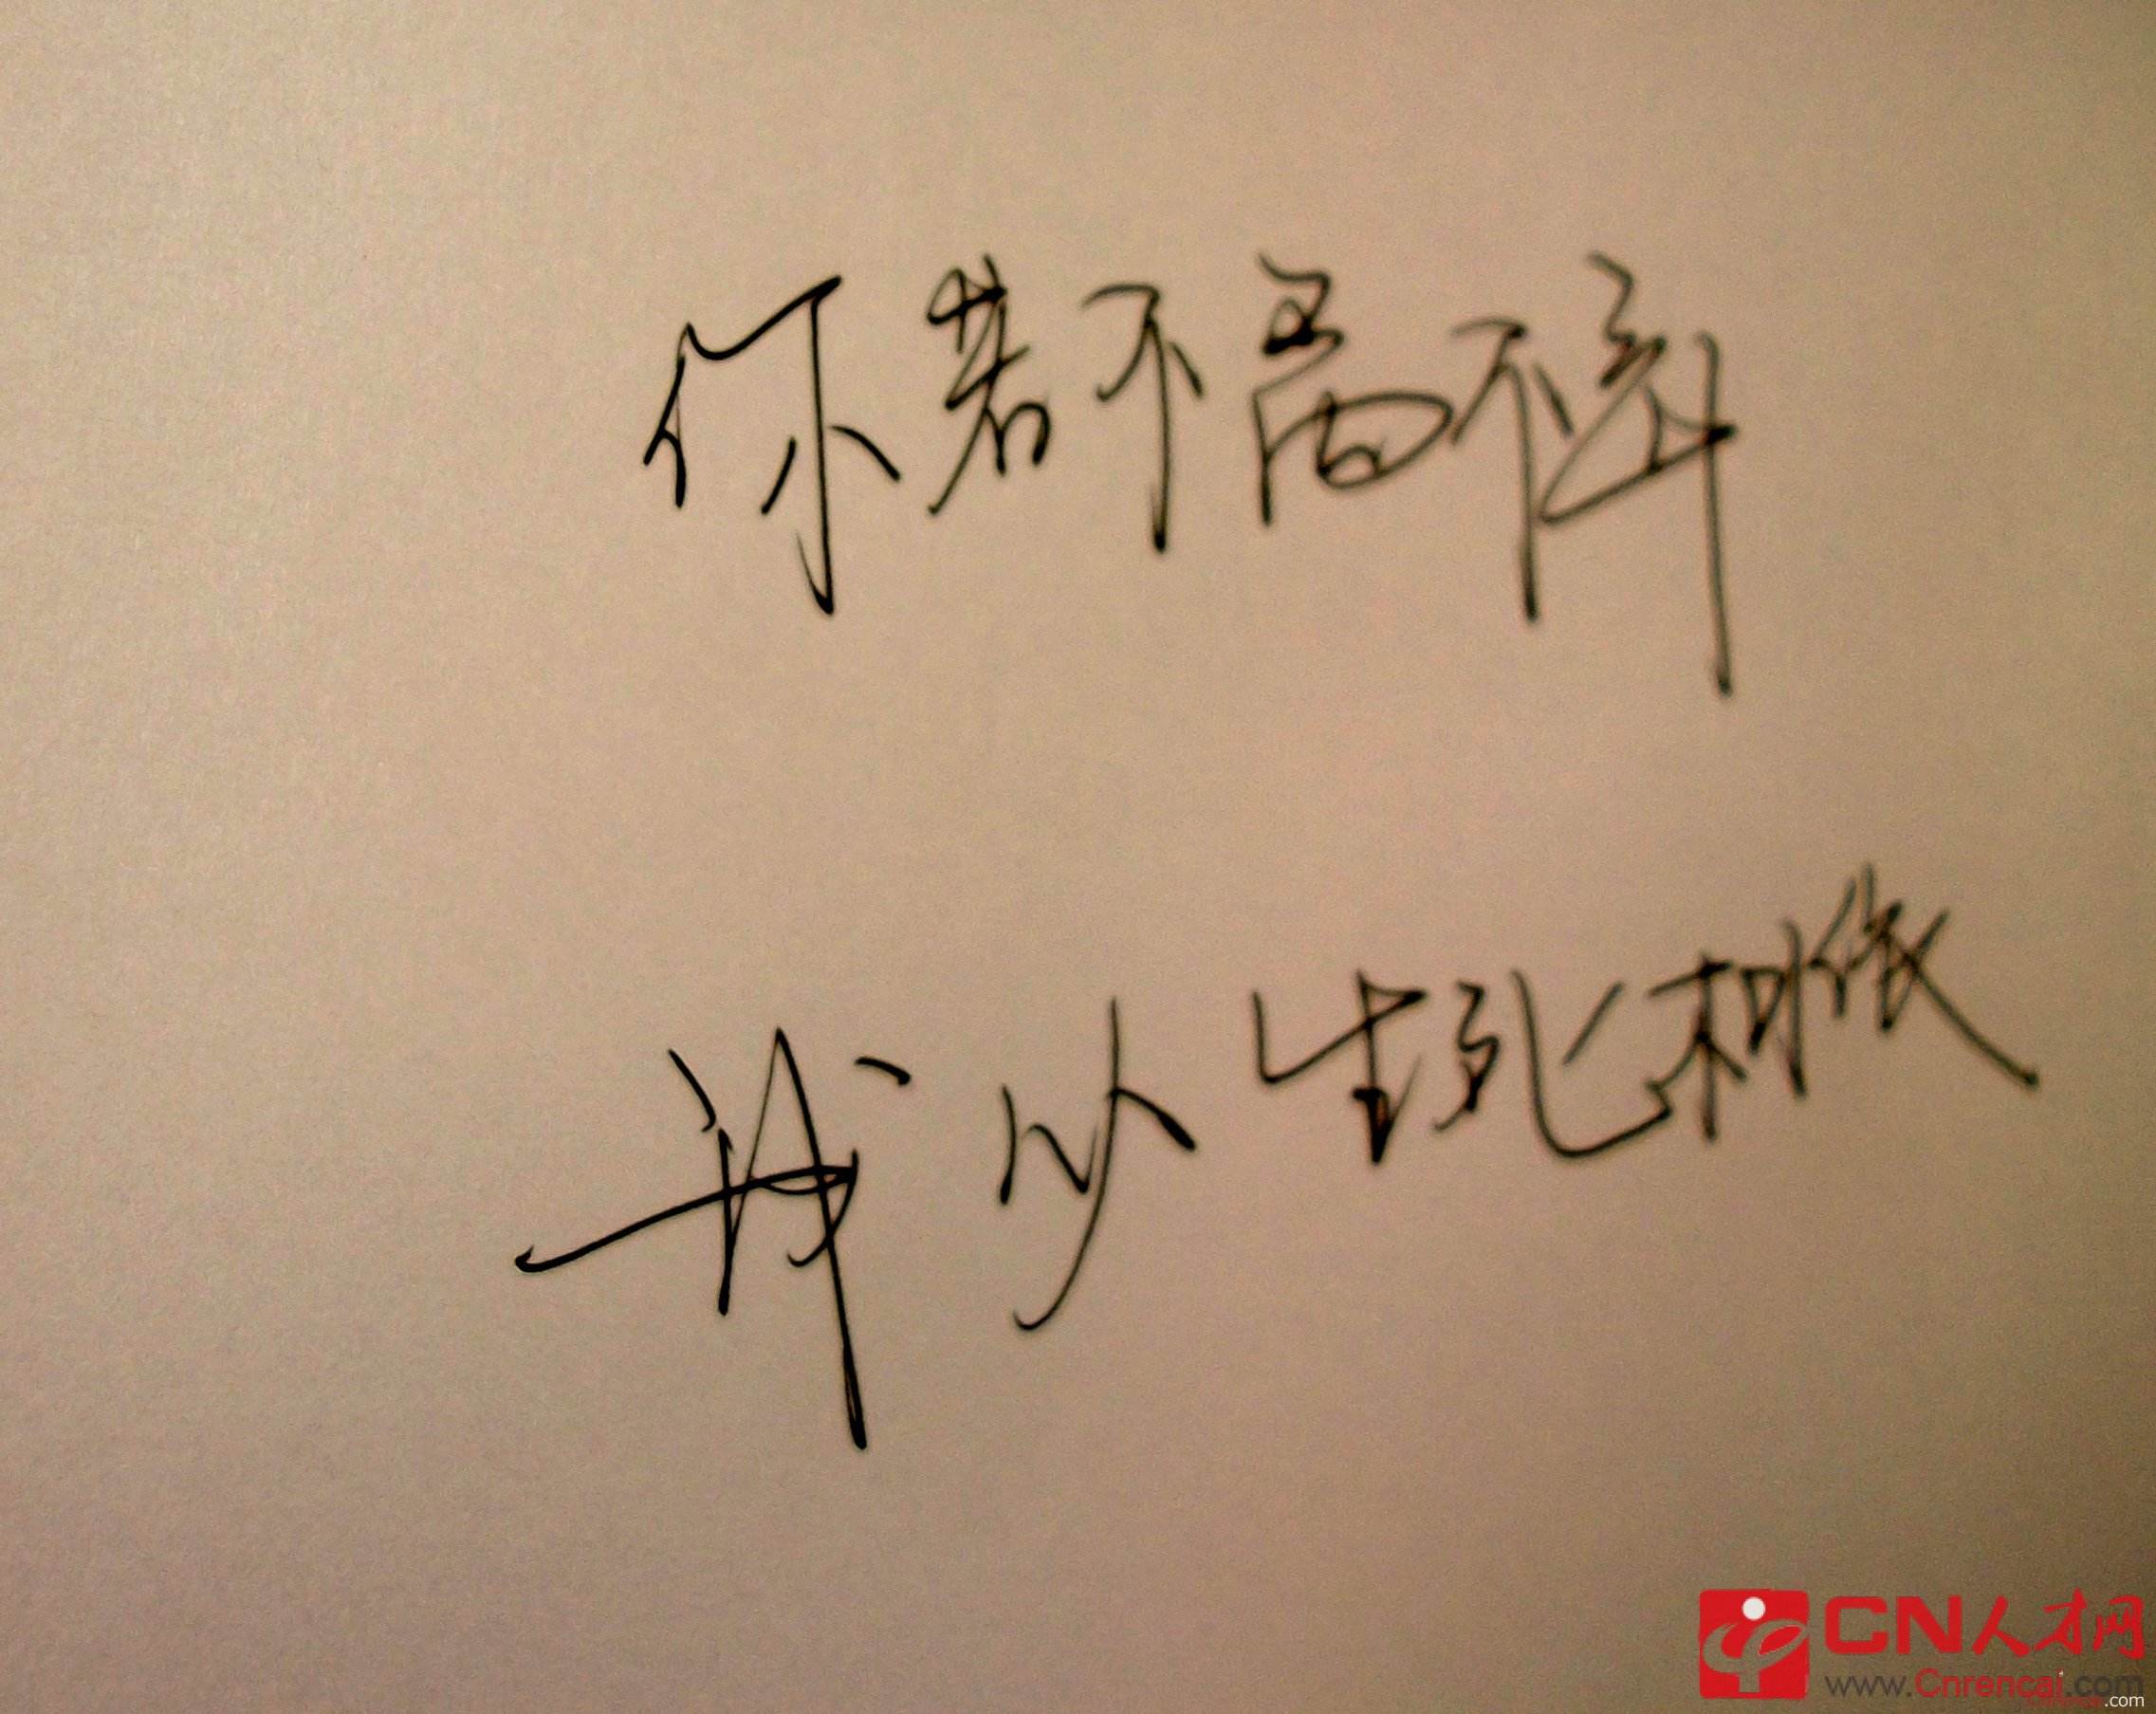 你若不离不弃
我以生死相依
CN人才网
www.Cnrencai.com
.com